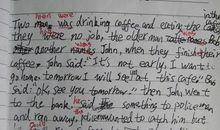 men were
Two man was drinking coffee and eating the cake
they were no job, the older man
another John, when they finish their
coffee, John said "It's not early, I want
go home, tomorrow I will see at this cafe". Bob
said: "OK, see you tomorrow." then John went
to the bank, he said something to policeman
and ran away. Policeman wanted to catch him but